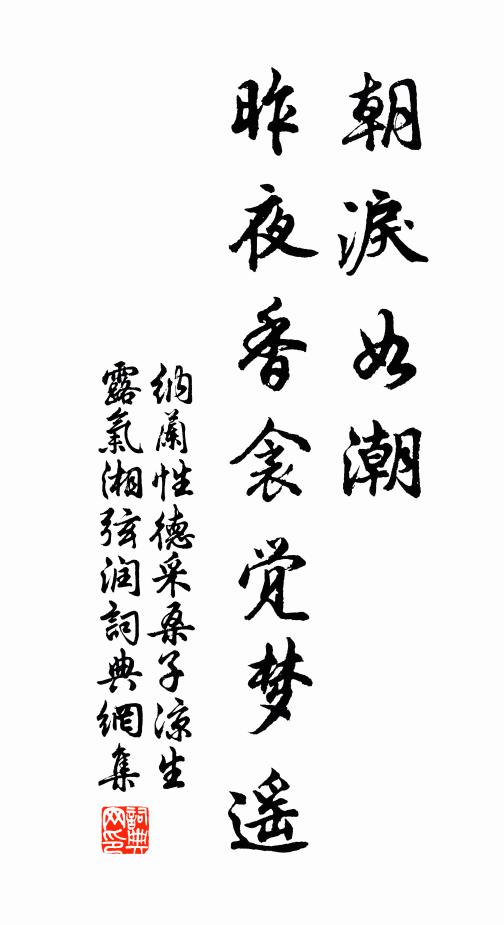 朝淚如潮
昨夜香衾觉梦遥
纳蘭性德采桑子凉生
露氣湘弦润詞典網集
詞典网印